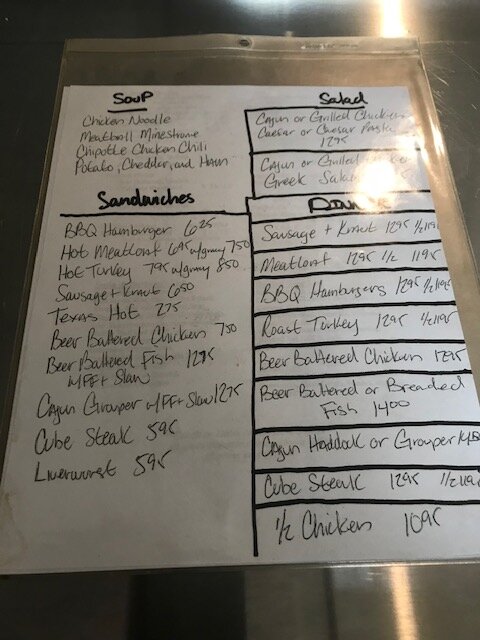 Soup
Chicken Noodle
Meatball Minestrone
Chipotle Chicken Chili
Potato, Chedder, and Ham
Sandwiches
BBQ Hamburger 625
Hot Meatloaf 695 w/gravy 750
Hot Turkey 795 w/gravy 850
Sausage + Kraut 650
Texas Hot 275
Beer Battered Chicken 750
Beer Battered Fish 1295
w/FF + Slaw
Cajun Grouper w/FF + Slaw 1295
Cube Steak 595
Liverwurst 595
Salad
Cajun or Grilled Chicken
Caesar or Caesar Pasta
1295
Cajun or Grilled
Greek Salad
Sausage + Kraut 1295 1/2 119
Meatloaf 1295 1/2 1195
BBQ Hamburgers 1295 1/2 1195
Roast Turkey 1295 1/2 1195
Beer Battered Chicken 1295
Beer Battered or Breaded
Fish 1400
Cajun Haddock or Grouper
Cube Steak 1295 1/2 1195
1/2 Chicken 1095